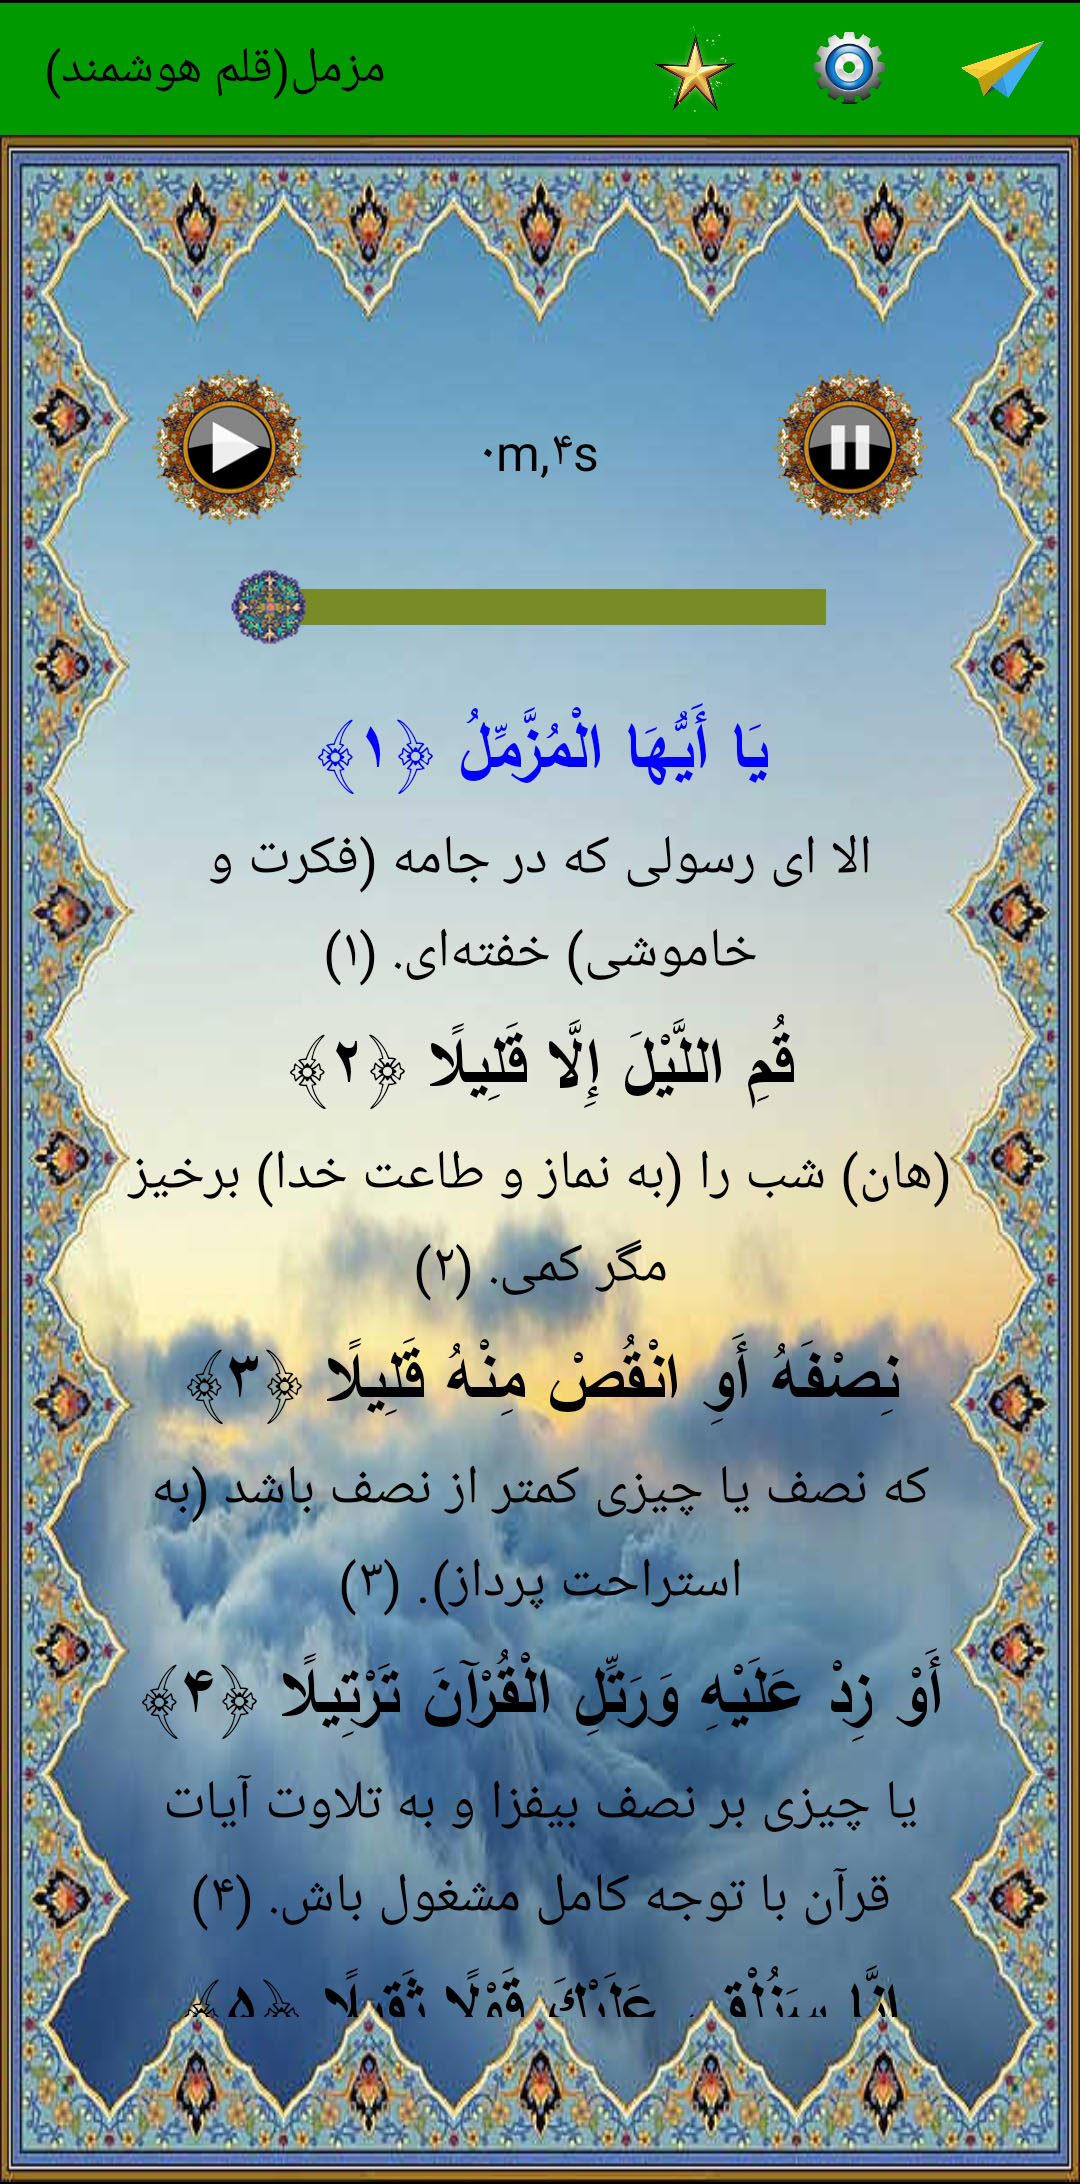 مزمل(قلم هوشمند)
۰m,۴s
يَا أَيُّهَا الْمُزَّمِّلُ ﴿۱﴾
الا ای رسولی که در جامه (فکرت و
خاموشی) خفته‌ای. (۱)
قُمِ اللَّيْلَ إِلَّا قَلِيلًا ﴿۲﴾
(هان) شب را (به نماز و طاعت خدا) برخیز
مگر کمی. (۲)
نِصْفَهُ أَوِ انْقُصْ مِنْهُ قَلِيلًا ﴿۳﴾
که نصف یا چیزی کمتر از نصف باشد (به
استراحت پرداز). (۳)
أَوْ زِدْ عَلَيْهِ وَرَتِّلِ الْقُرْآنَ تَرْتِيلًا ﴿۴﴾
یا چیزی بر نصف بیفزا و به تلاوت آیات
قرآن با توجه کامل مشغول باش. (۴)
إِنَّا سَنُلْقِي عَلَيْكَ قَوْلًا ثَقِيلًا ﴿۵﴾